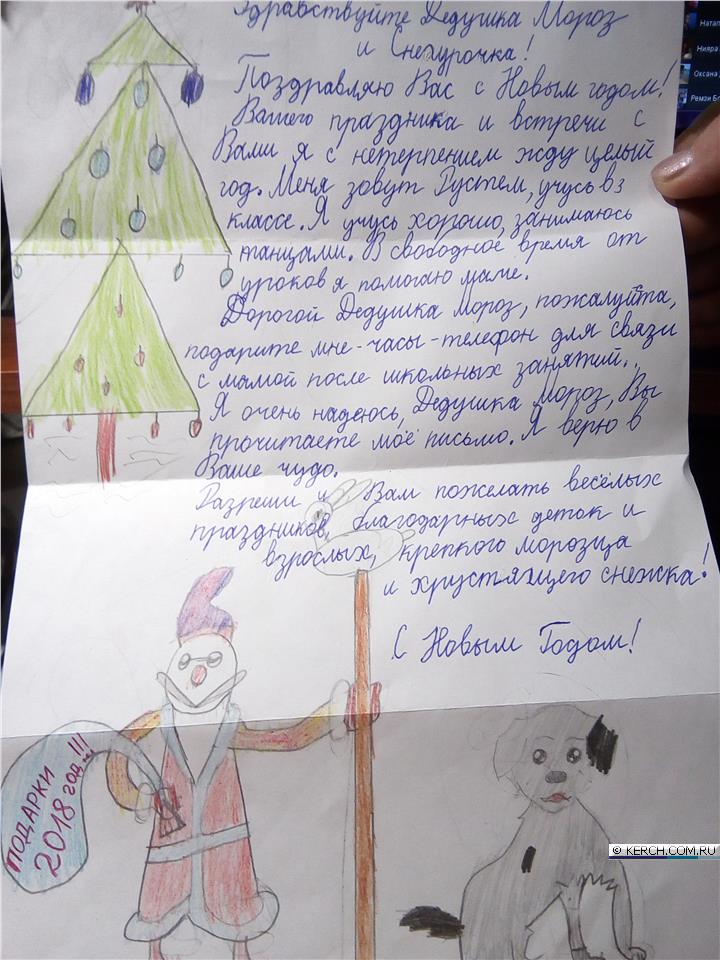 Здравствуйте Дедушка Мороз
и Снегурочка!
Поздравляю Вас с Новым годом!
Вашего праздника и встречи с
Вами я с нетерпением жду целый
год. Меня зовут Рустем, учусь в 3
классе. Я учусь хорошо, занимаюсь
танцами. В свободное время от
уроков я помогаю маме.
Дорогой Дедушка Мороз, пожалуйта,
подарите мне-часы-телефон для связи
с мамой после школьных занятий..
Я очень надеюсь, Дедушка Мороз, Вы
прочитаете моё письмо. Я верю в
Ваше чудо.
Разреши и Вам пожелать весёлых
праздников, благодарных деток и
взрослых, крепкого морозца
и хрустящего снежка!
С Новым Годом!
ПОДАРКИ
2018 год..!!!
Натал
Нияра
Оксана
Ремзи Бе
© KERCH.COM.RU